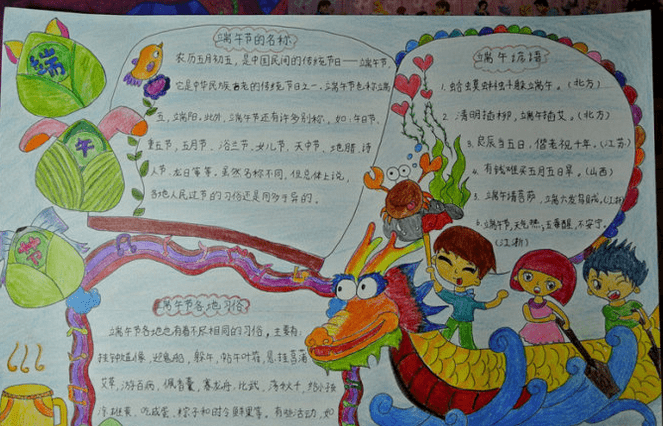 端
午
节
端午节的名称
农历五月初五,是中国民间的传统节日——端午节,
它是中华民族古老的传统节日之一。端午节也称端
五,端阳。此外,端午节还有许多别称,如:午日节、
重五节,五月节,浴兰节,女儿节,天中节、地腊、诗
人节、龙日等等。虽然名称不同,但总体上说,
各地人民过节的习俗还是同多于异的。
端午谚语
1. 蛤蟆蝌蚪躲端午。(北方)
2. 清明插柳,端午插艾。(北方)
3. 良辰当五日,偕老祝千年。(江苏)
4. 有钱难买五月五日旱。(山西)
5. 端午请菩萨,端六发乌贼。(江浙)
6. 端午节,天气热;五毒醒,不安宁。
(江浙)
端午节各地习俗
端午节各地也有着不尽相同的习俗,主要有:
挂钟馗像,迎鬼船,躲午,帖午叶符,悬挂菖蒲
艾草,游百病,佩香囊,赛龙舟,比武,荡秋千,给小孩
涂雄黄,吃咸蛋,粽子和时令鲜果等。有些活动,如